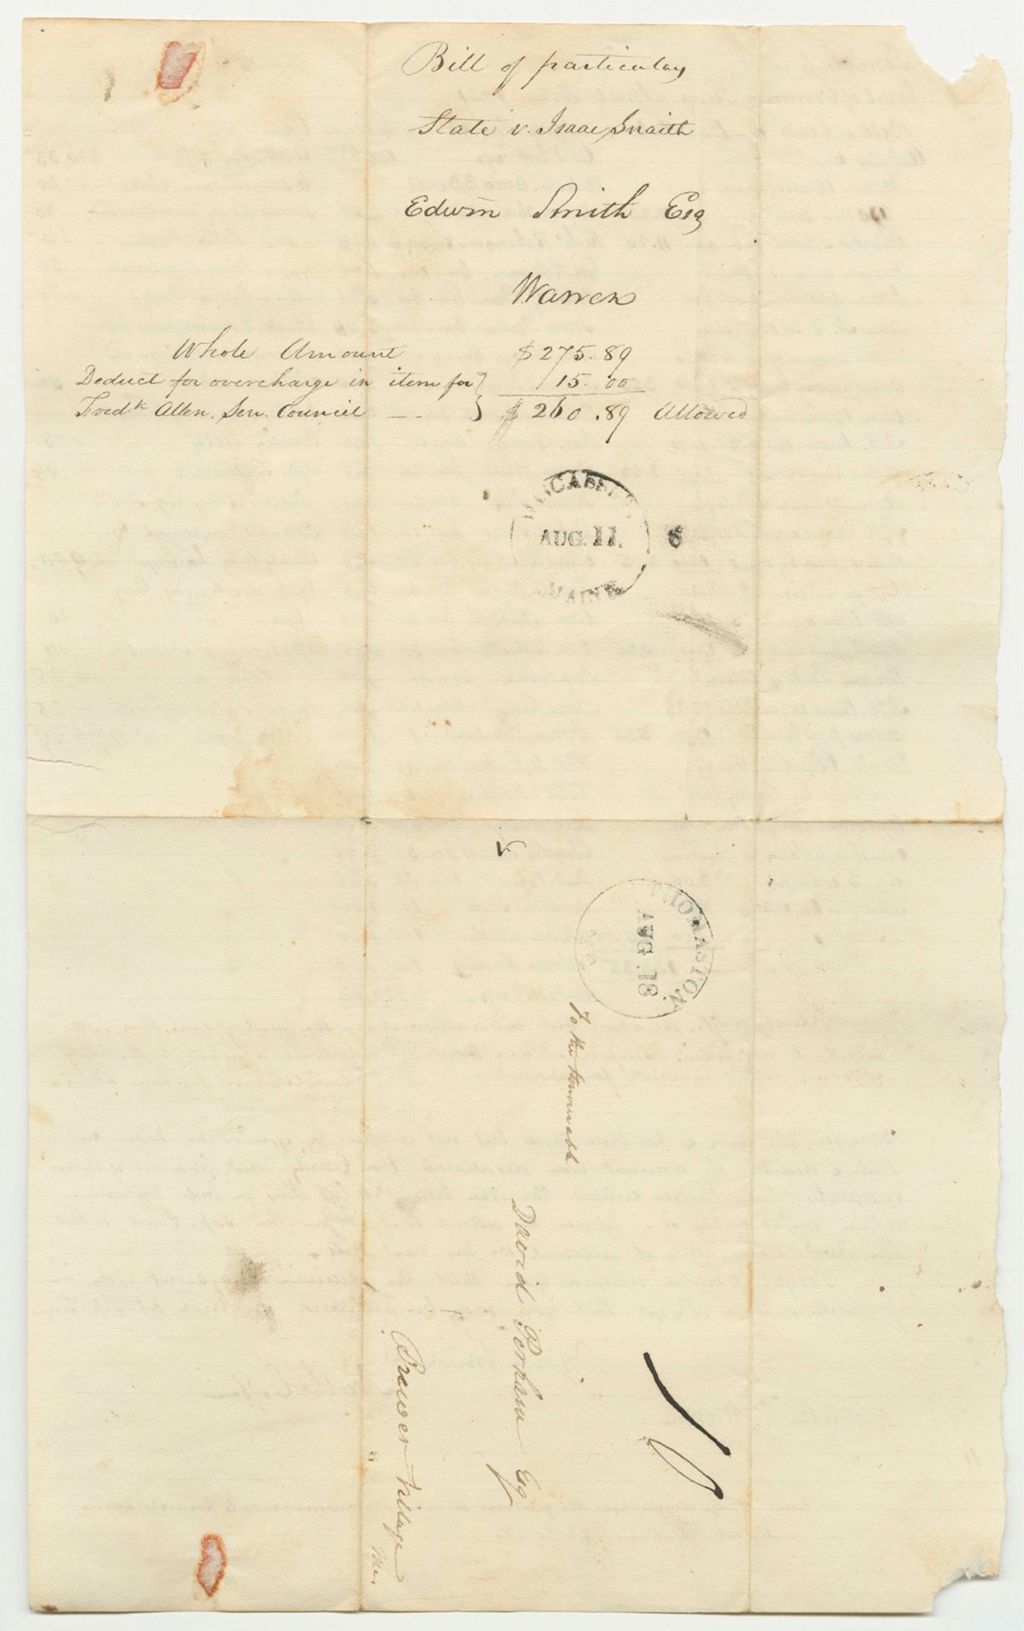 Bill of particulars
State v. Isaac Snaith
Edwin Smith Esq
Warren
Whole Amount $275.89
Deduct for overcharge in item for } 15.00
Fredk Allen. Sen. Council -- } $260.89 Allowed
WISCASSET
AUG. 11.
MAINE
6
THOMASTON
AUG. 18
To the Honourable
David Perham Esq
Brewer Village
Me.
10